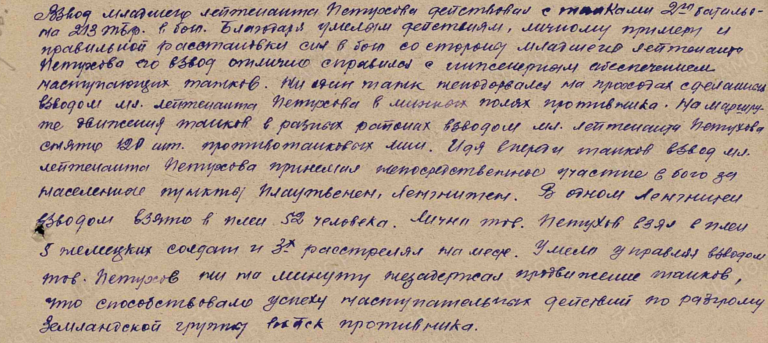 Взвод младшего лейтенанта Петухова действовал с танками 2го батальо-
на 213 тбр. в бою. Благодаря умелым действиям, личному примеру и
правильной расстановки сил в бою со стороны младшего лейтенанта
Петухова его взвод отлично справился с инженерным обеспечением
наступающих танков. Ни один танк неподорвался на проходах сделанных
взводом мл. лейтенанта Петухова в минных полях противника. На маршру-
те движения танков в разных районах взводом мл. лейтенанта Петухова
снято 120 шт. противотанковых мин. Идя впереди танков взвод мл.
лейтенанта Петухова принемал непосредственное участие в бою за
населенные пункты Плаутвенен, . В одном
взводом взято в плен 52 человека. Лично тов. Петухов взял в плен
5 немецких солдат и 3х расстрелял на месте. Умело управляя взводом
тов. Петухов ни на минуту незадержал продвижение танков,
что способствовало успеху наступательных действий по разгрому
Земландской группы войск противника.